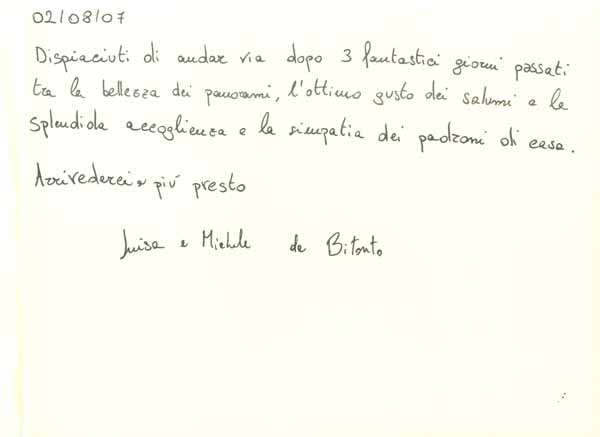 02/08/07
Dispiaciuti di andar via dopo 3 fantastici giorni passati
tra la bellezza dei panorami, l'ottimo gusto dei salumi e la
splendida accoglienza e la simpatia dei padroni di casa.
Arrivederci a più presto
Luisa e Michele da Bitonto